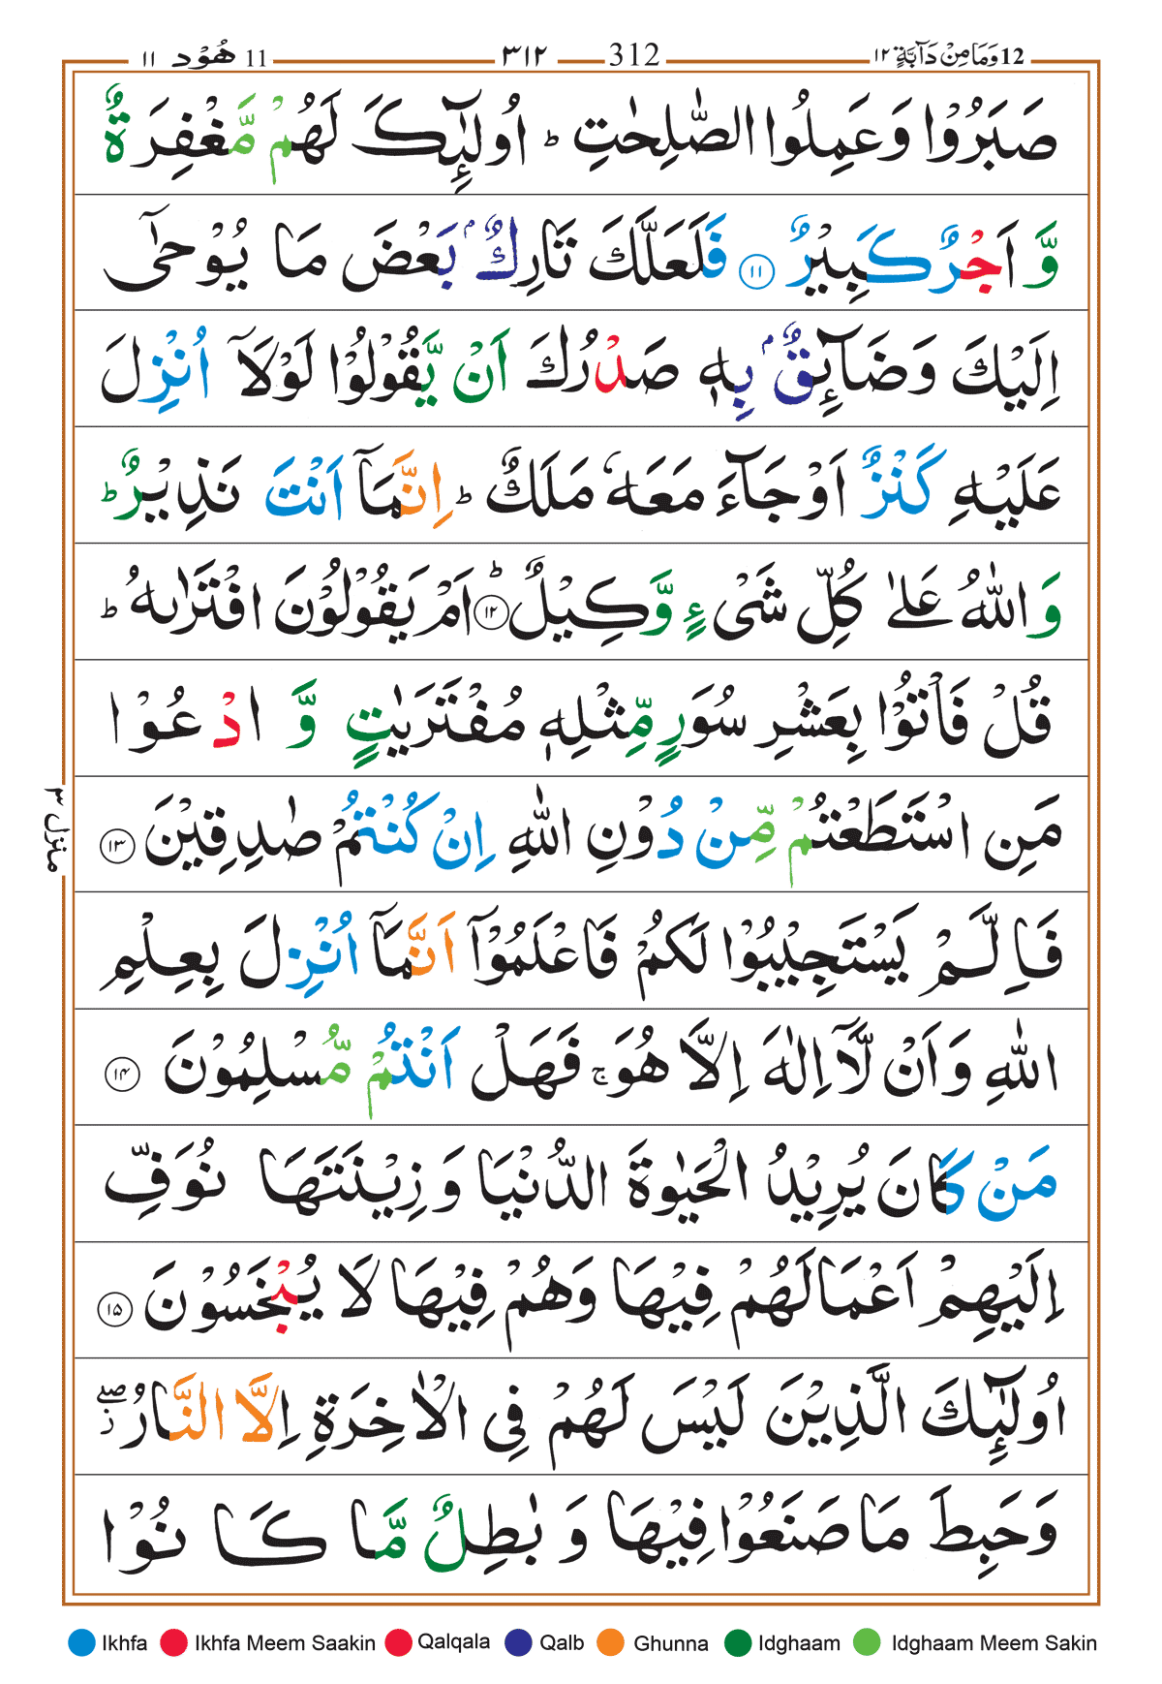 12 وَمَا مِنْ دَآبَّةٍ ١٢ 312 ٣١٢ 11 هُوْد ١١
صَبَرُوْا وَعَمِلُوا الصّٰلِحٰتِ ؕ اُولٰٓئِكَ لَهُمْ مَّغْفِرَةٌ
وَّ اَجْرٌ كَبِيْرٌ ١١ فَلَعَلَّكَ تَارِكٌۢ بَعْضَ مَا يُوْحٰٓى
اِلَيْكَ وَضَآئِقٌۢ بِهٖ صَدْرُكَ اَنْ يَّقُوْلُوْا لَوْلَآ اُنْزِلَ
عَلَيْهِ كَنْزٌ اَوْ جَآءَ مَعَهٗ مَلَكٌ ؕ اِنَّمَآ اَنْتَ نَذِيْرٌ ؕ
وَاللّٰهُ عَلٰى كُلِّ شَىْءٍ وَّكِيْلٌ ؕ ١٢ اَمْ يَقُوْلُوْنَ افْتَرٰىهُ ؕ
قُلْ فَاْتُوْا بِعَشْرِ سُوَرٍ مِّثْلِهٖ مُفْتَرَيٰتٍ وَّ ادْعُوْا
مَنِ اسْتَطَعْتُمْ مِّنْ دُوْنِ اللّٰهِ اِنْ كُنْتُمْ صٰدِقِيْنَ ١٣
فَاِلَّمْ يَسْتَجِيْبُوْا لَكُمْ فَاعْلَمُوْٓا اَنَّمَآ اُنْزِلَ بِعِلْمِ
اللّٰهِ وَاَنْ لَّآ اِلٰهَ اِلَّا هُوَ ۚ فَهَلْ اَنْتُمْ مُّسْلِمُوْنَ ١٤
مَنْ كَانَ يُرِيْدُ الْحَيٰوةَ الدُّنْيَا وَ زِيْنَتَهَا نُوَفِّ
اِلَيْهِمْ اَعْمَالَهُمْ فِيْهَا وَهُمْ فِيْهَا لَا يُبْخَسُوْنَ ١٥
اُولٰٓئِكَ الَّذِيْنَ لَيْسَ لَهُمْ فِى الْاٰخِرَةِ اِلَّا النَّارُ ۖ ز
وَحَبِطَ مَا صَنَعُوْا فِيْهَا وَ بٰطِلٌ مَّا كَا نُوْا
منزل ٣
Ikhfa Ikhfa Meem Saakin Qalqala Qalb Ghunna Idghaam Idghaam Meem Sakin